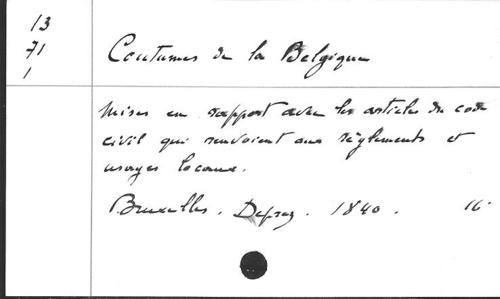 13
71
1
Coutumes de la Belgique
mises en rapport avec les articles du code
civil qui renvoient aux règlements et
usages locaux.
Bruxelles. Deprez. 1840. 16°